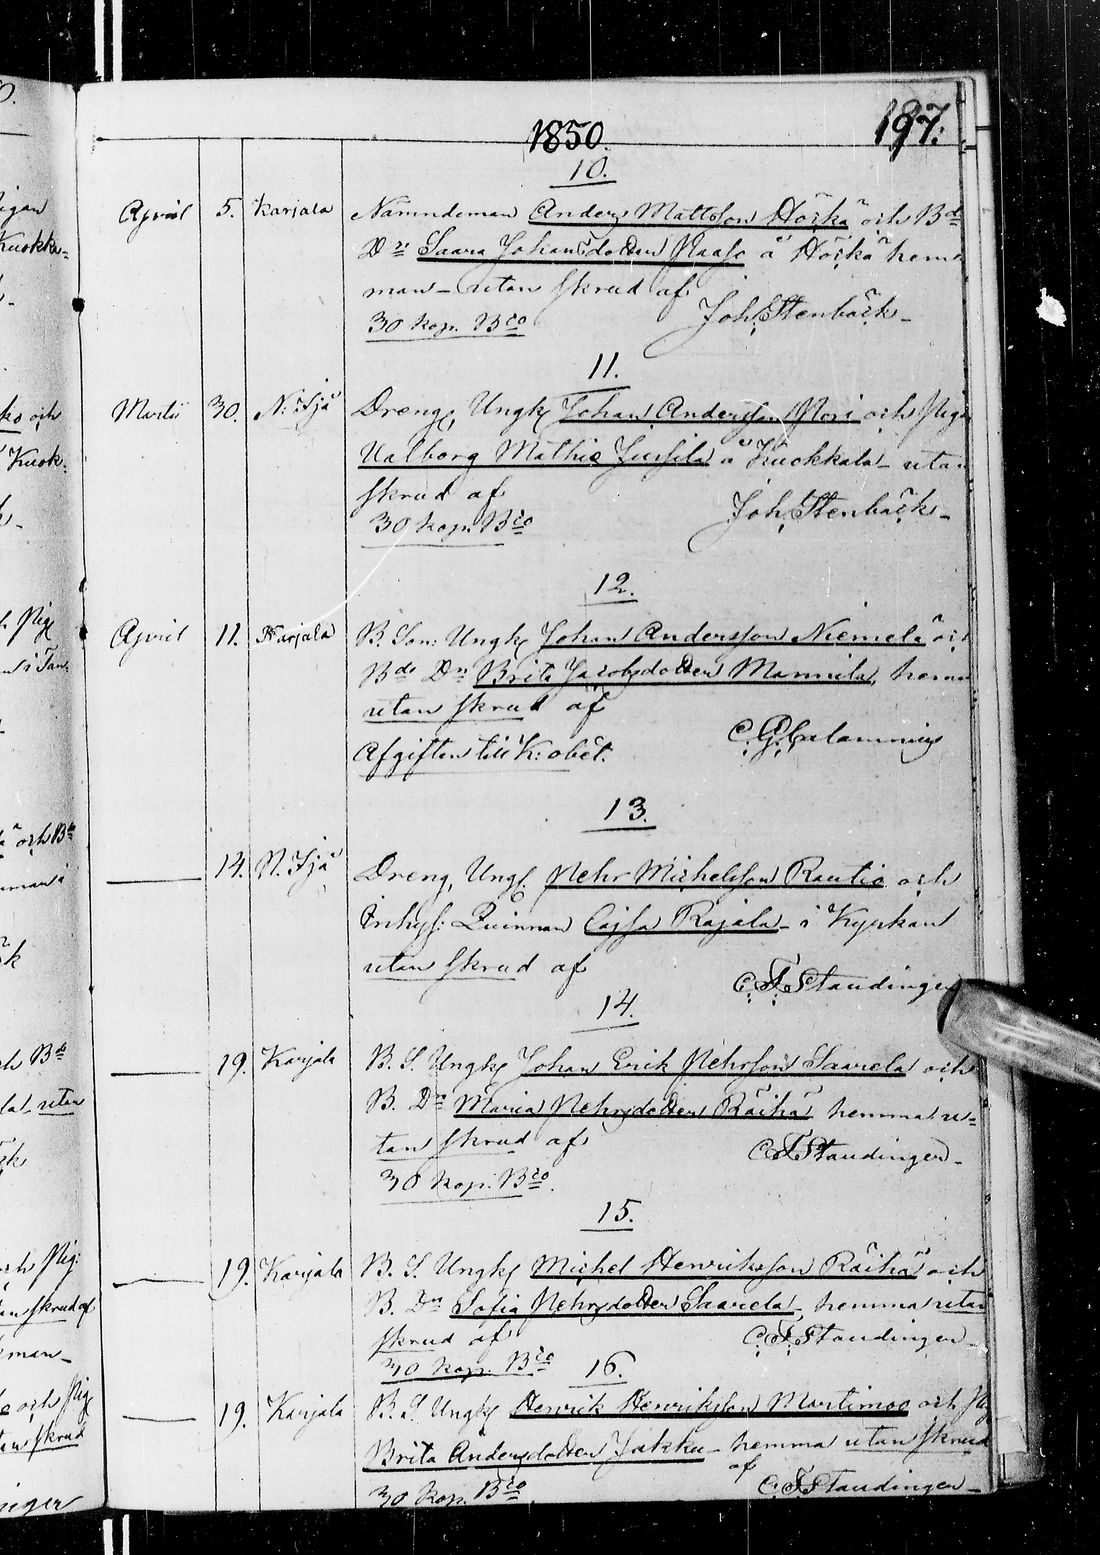 1850.
197.
10.
April 5. Karjala Nämndeman Anders Mattsson Höckä och Bde
Dr Saara Johansdotter Haaſo å Höckä hem=
man – utan skrud af
30 kop. Bco Joh. Stenbäck –
11.
Martii 30. N: Sjä Dreng, Ungk Johan Andersson Pori och Pigan
Valborg Mathie Jussila å Kuokkala – utan
skrud af
30 kop. Bco Joh. Stenbäck –
12.
April 11. Karjala B. Son: Ungk Johan Andersson Niemelä och
Bde Dn Brita Jacobsdotter Mannila, hemma
utan skrud af
C. G. Calamnius
Afgiften till K: obet.
13.
14. N. Sjä Dreng, Ungk Pehr Michelsson Rautio och
Inhys: Quinnan Cajsa Rajala – i Kyrkan
utan skrud af
C. F. Staudinger
14.
19. Karjala B. S. Ungk Johan Erik Pehrsson Saarela och
B. Dn Maria Pehrsdotter Räihä hemma u=
tan skrud af C. F. Staudinger –
30 kop. Bco.
15.
19. Karjala B. S. Ungk Michel Henriksson Räihä och
B. Dn Sofia Pehrsdotter Saarela – hemma utan
skrud af C. F. Staudinger –
30 kop. Bco
16.
19. Karjala B. S. Ungk Henrik Henriksson Martimoo och Pig
Brita Andersdotter Jakku – hemma utan skrud
af C. F. Staudinger –
30 kop. Bco